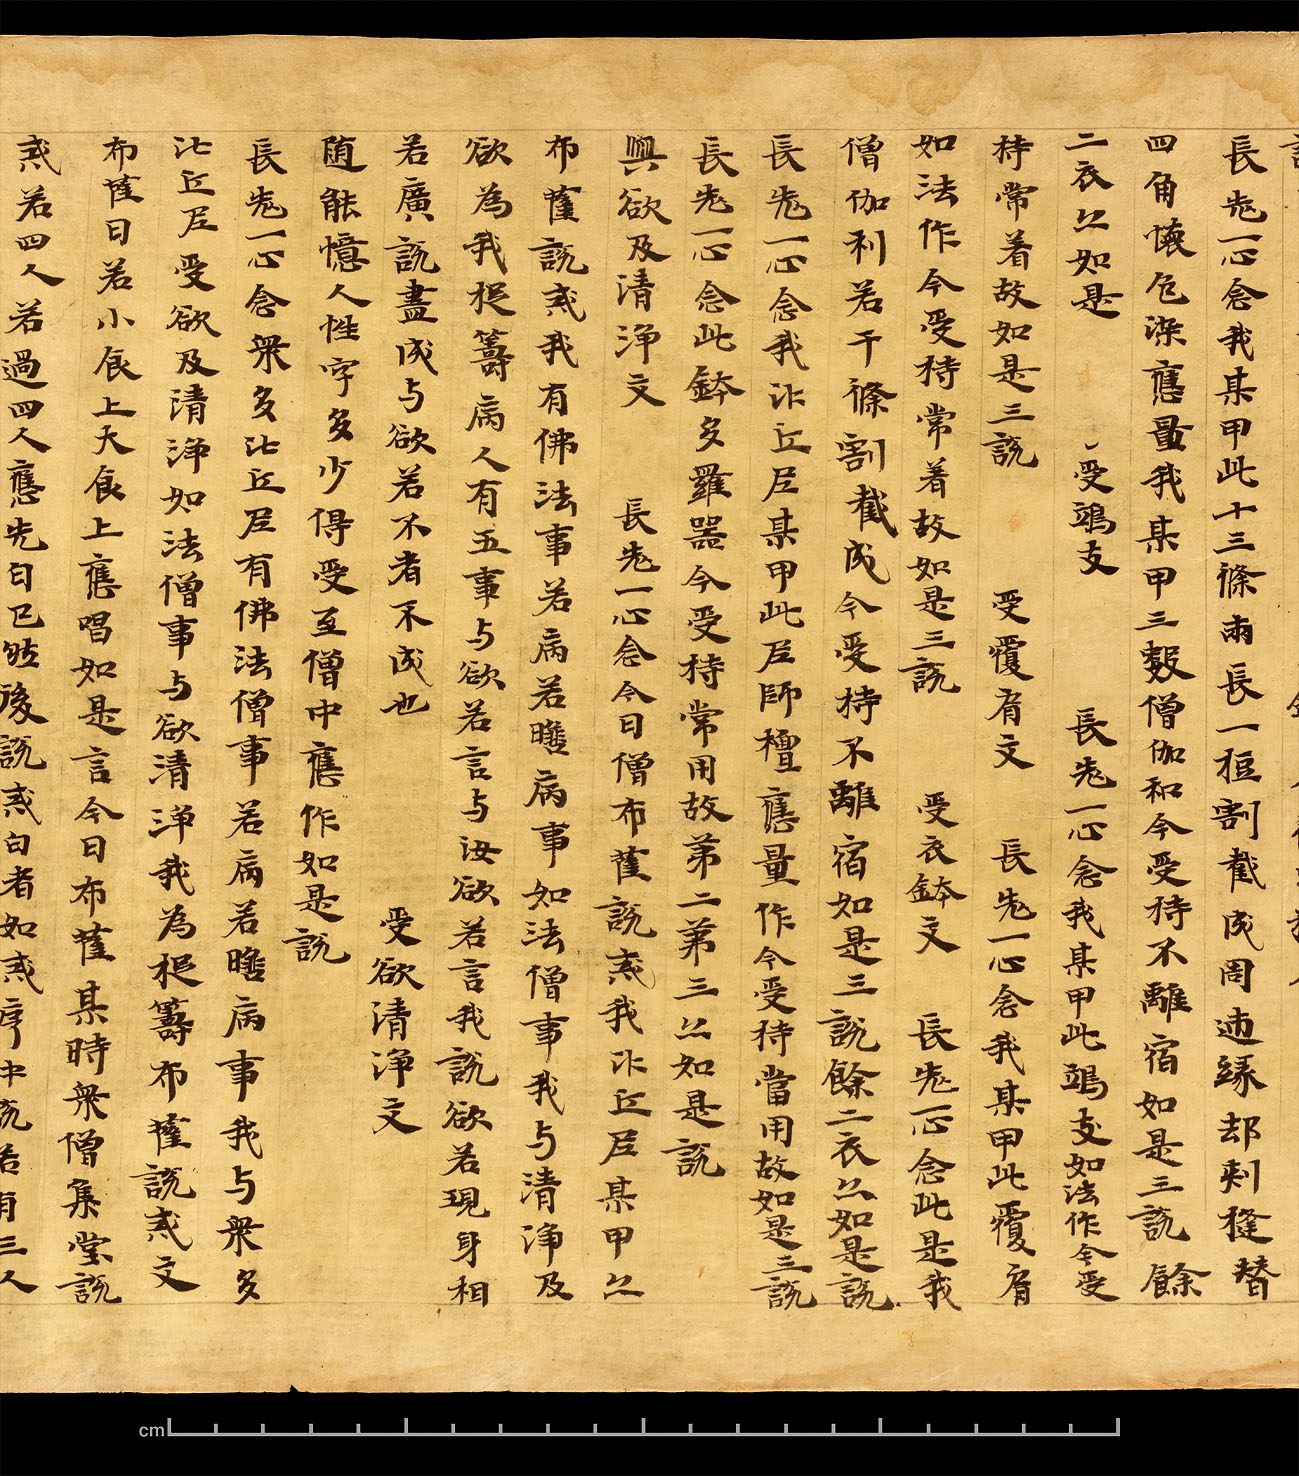 長老一心念我某甲此十三條兩長一短割截成周迊緣却刺縫替
四角壞色染應量我某甲三數僧伽和今受持不離宿如是三說 餘
二衣亦如是 受竭支 長老一心念我某甲此竭支如法作今受
持常着故如是三說 受覆肩文 長老一心念我某甲此覆肩
如法作今受持常着故如是三說 受衣鉢文 長老一心念此是我
僧伽利若干條割截成今受持不離宿如是三說餘二衣亦如是說
長老一心念我比丘尼某甲此尼師檀應量作今受持當用故如是三說
長老一心念此鉢多羅器今受持常用故第二第三亦如是說
與欲及清淨文 長老一心念今日僧布薩說戒我比丘尼某甲亦
布薩說戒我有佛法事若病若瞻病事如法僧事我与清淨及
欲為我捉籌病人有五事与欲若言与汝欲若言我說欲若現身相
若廣說盡成与欲若不者不成也 受欲清淨文
随能憶人性字多少得受至僧中應作如是說
長老一心念眾多比丘尼有佛法僧事若病若瞻病事我与眾多
比丘尼受欲及清淨如法僧事与欲清淨我為捉籌布薩說戒文
布薩日若小食上大食上應唱如是言今日布薩某時眾僧集堂說
戒若四人若過四人應先白已然後說戒白者如戒序中說若有三人